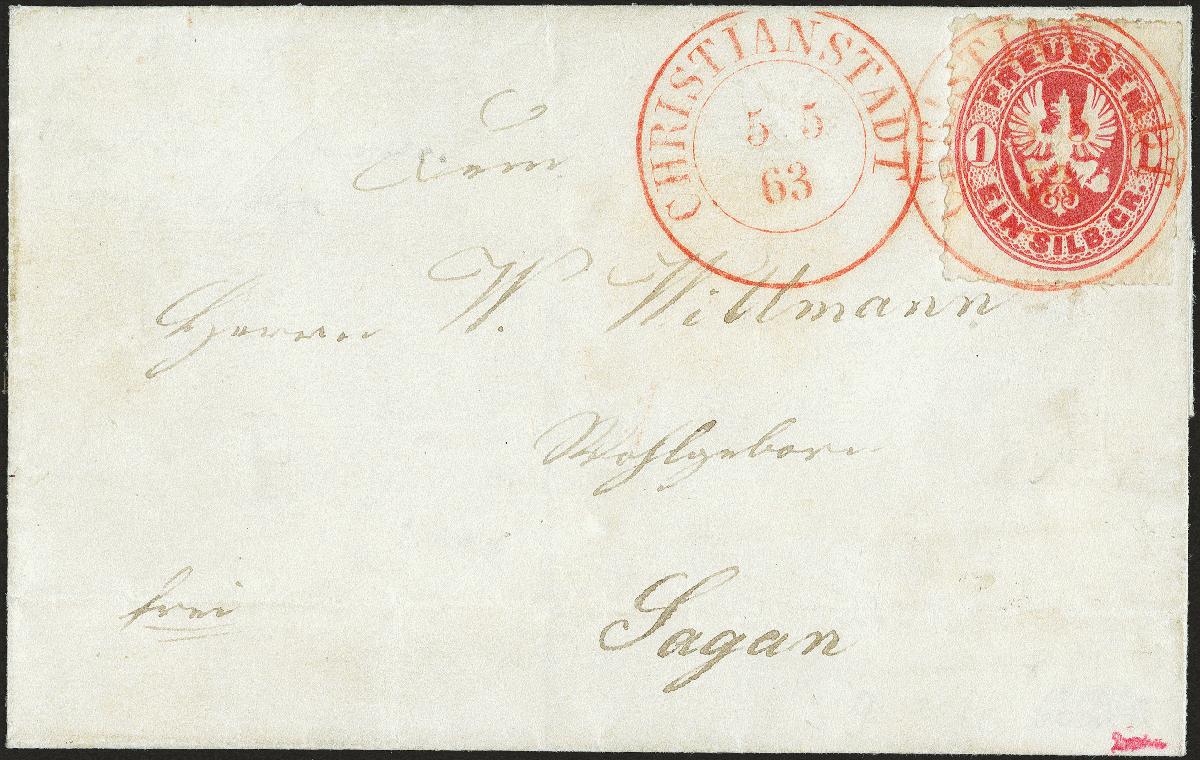 CHRISTIANSTADT
5 5
63
PREUSSEN
1 1
EIN SILB. GR.
Dem
Herrn W. Wittmann
Wohlgeborn
frei
Sagan